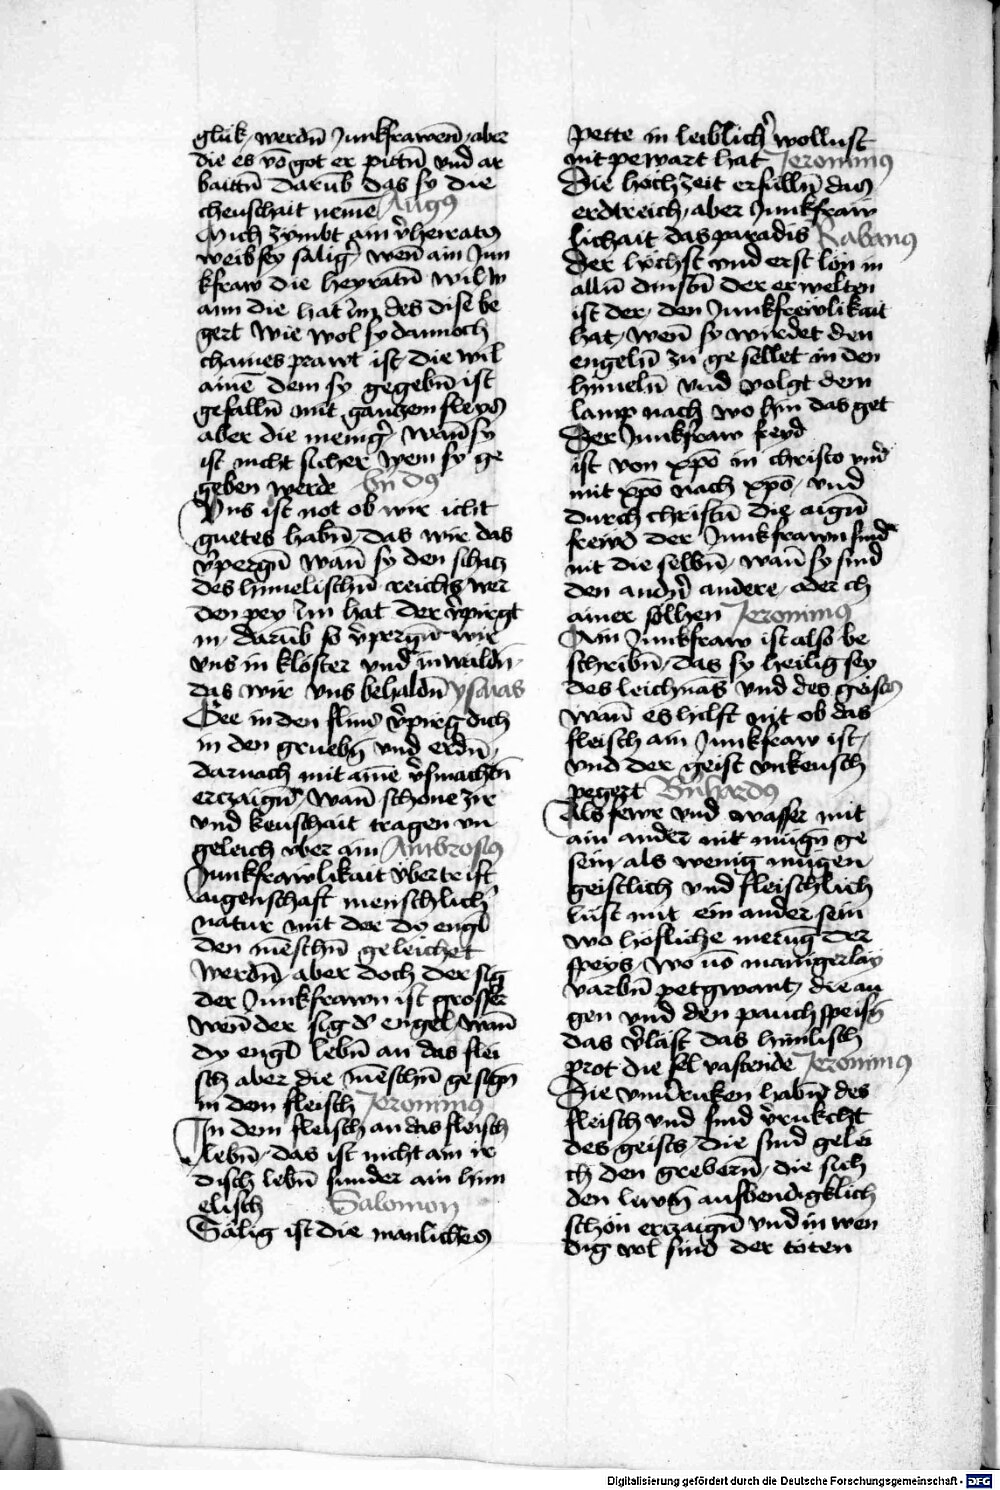 gluk werdn̄ Junkfrawen̄ aber
die es võ got er pittn̄ vnd ar
baittn̄ darūb das sy die
cheuschait nemē Augꝰ
Auch zymbt ain v̓heiratꝰ
weib sey salig wen̄ ain Jun
kfraw die heyratn̄ wil
ann die hat des dise be
gert wie wol sy dannoch
chaines prawt ist die wil
ainē dem sy gegebn̄ ist
gefalln̄ mit ganzem fleyß
aber die menig wan̄ sy
ist nicht sicher wem sy ge
geben werde
Vns ist not ob wir icht
guetes habn̄ das wir das
v̓pergn̄ wan̄ sy den schatz
des himelischn̄ reichs wer
den pey im hat der v̓pirgt
in darūb so v̓pergn̄ wir
vns in kloster vnd in waldn̄
das wir vns behaldn̄ ysaias
Gee in den v̓pirg dich
in den gruebn̄ vnd erdn̄
darnach mit ainē v̓smachn̄
erczaign̄ wan̄ schone zir
vnd keuschait tragen vn
geleich vber ain Ambrosiꝰ
Junkfrawlikait vbertrift
aigenschaft menschlich̓
natur mit der dy engl
den mēschn̄ geleichet
werdn̄ aber doch der sig
der Junkfrawn ist grosser
wen̄ der sig d̓ engel wan̄
dy engl lebn̄ an das flei
sch aber die mēschn̄ gesign̄
in dem fleisch Jeronimꝰ
In dem fleisch an das fleisch
lebn̄ das ist nicht ain ir
disch lebn̄ sunder ain him
elisch Salomon
Sälig ist die manlichꝰ
pette in leiblich̓ wollust
nit pewart hat Jeronimꝰ
Die hochzeit erfulln̄ das
erdtreich aber Junkfraw
lichait das paradis Rabanꝰ
Der höchst vnd erst lon in
alln̄ der erwelten
ist der den Junkfrewlikait
hat wen̄ sy wirdet den
engeln̄ zu gesellet in den
himeln̄ vnd volgt dem
lamp nach wo hin das get
Der Junkfraw frewd
ist von xp̄o in christo vnd
mit xp̄o nach xp̄o vnd
durch christū die aign̄
frewd der Junkfrawn sind
nit die selbn̄ wan̄ sy sind
den andn̄ andere oder ch
ainer sölhen Jeronimꝰ
Ain Junkfraw ist also be
schribn̄ das sy heilig sey
des leichnās vnd des geistes
wan̄ es hilft nit ob das
fleisch ain Junkfraw ist
vnd der geist vnkeusch
pegert Bn̄hardꝰ
Als fewr vnd wasser mit
ain ander nit mügn̄ ge
sein als wenig mügen
geistlich vnd fleischlich
lust mit ein ander sein
wo höfliche der
speys wo võ manigerlay
varbn̄ petgwant die au
gen vnd den pauch speisn̄
das v̓läst das himlisch
prot die sel vastende Jeronimꝰ
Die habn̄ des
fleisch vnd sind v̓rukcht
des geists die sind gelei
ch den grebern̄ die sich
den lewtn̄ auswendigklich
schön erczaign̄ vnd in wen
dig vol sind der toten